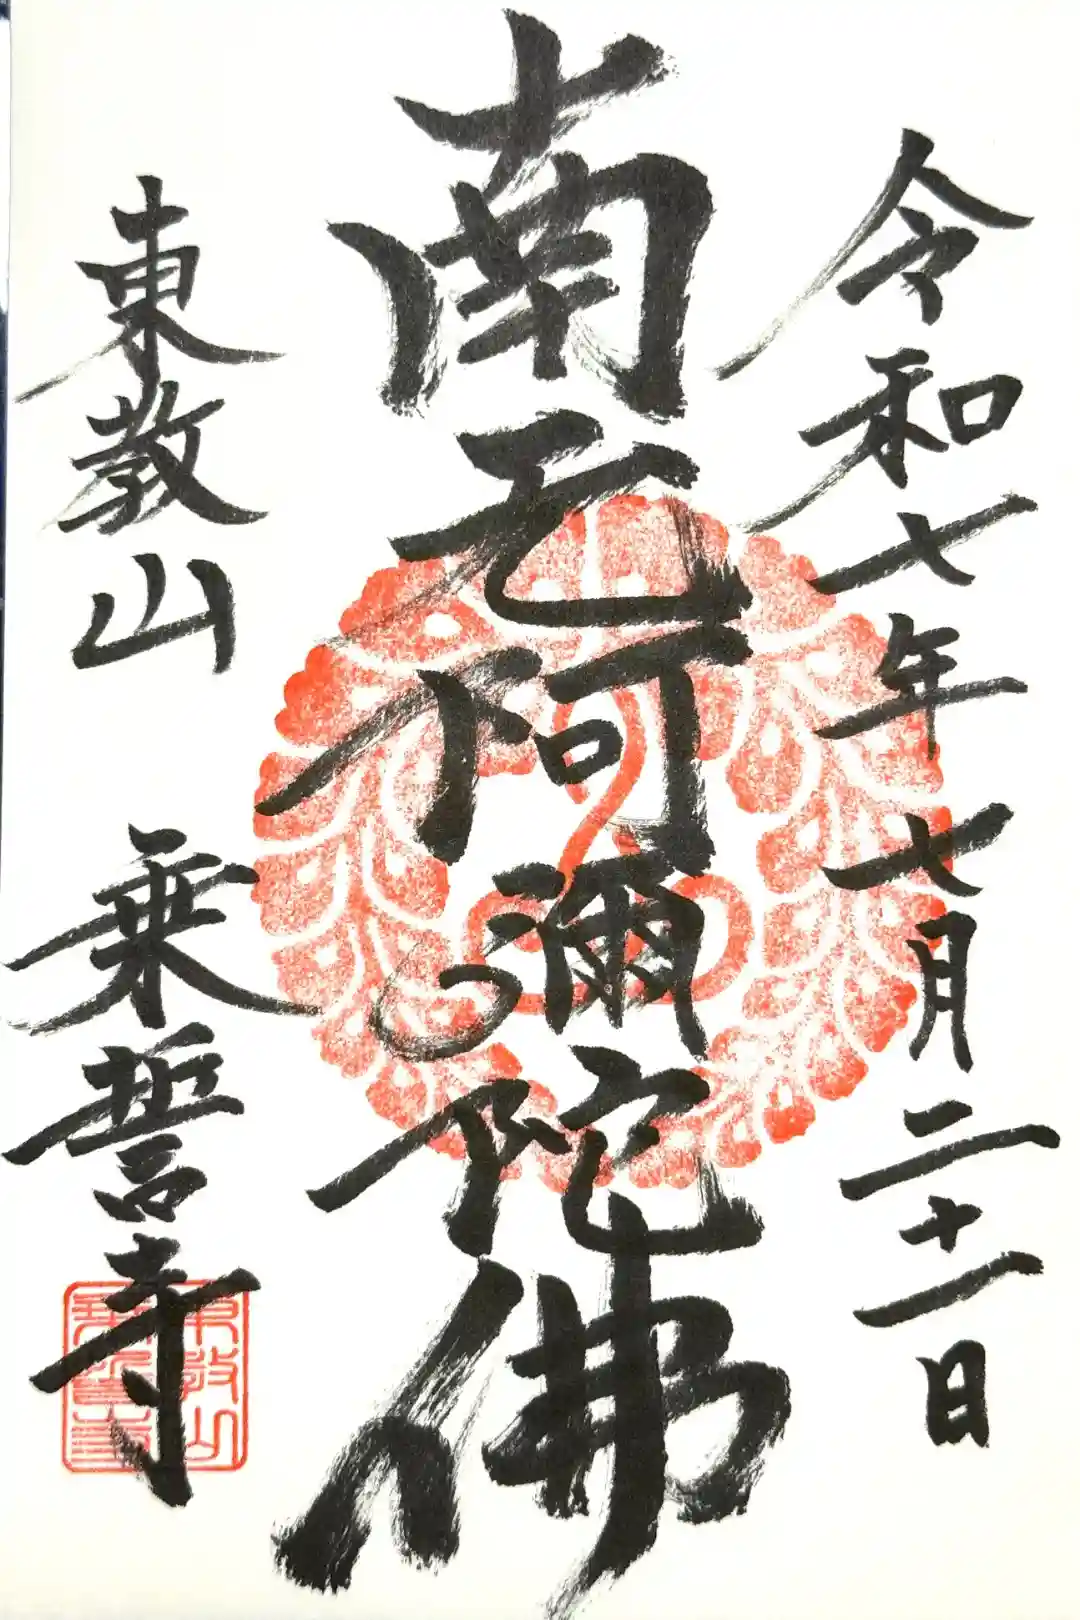 令和七年七月二十一日
南无阿彌陀佛
東教山 乗誓寺
東教山
乗誓寺